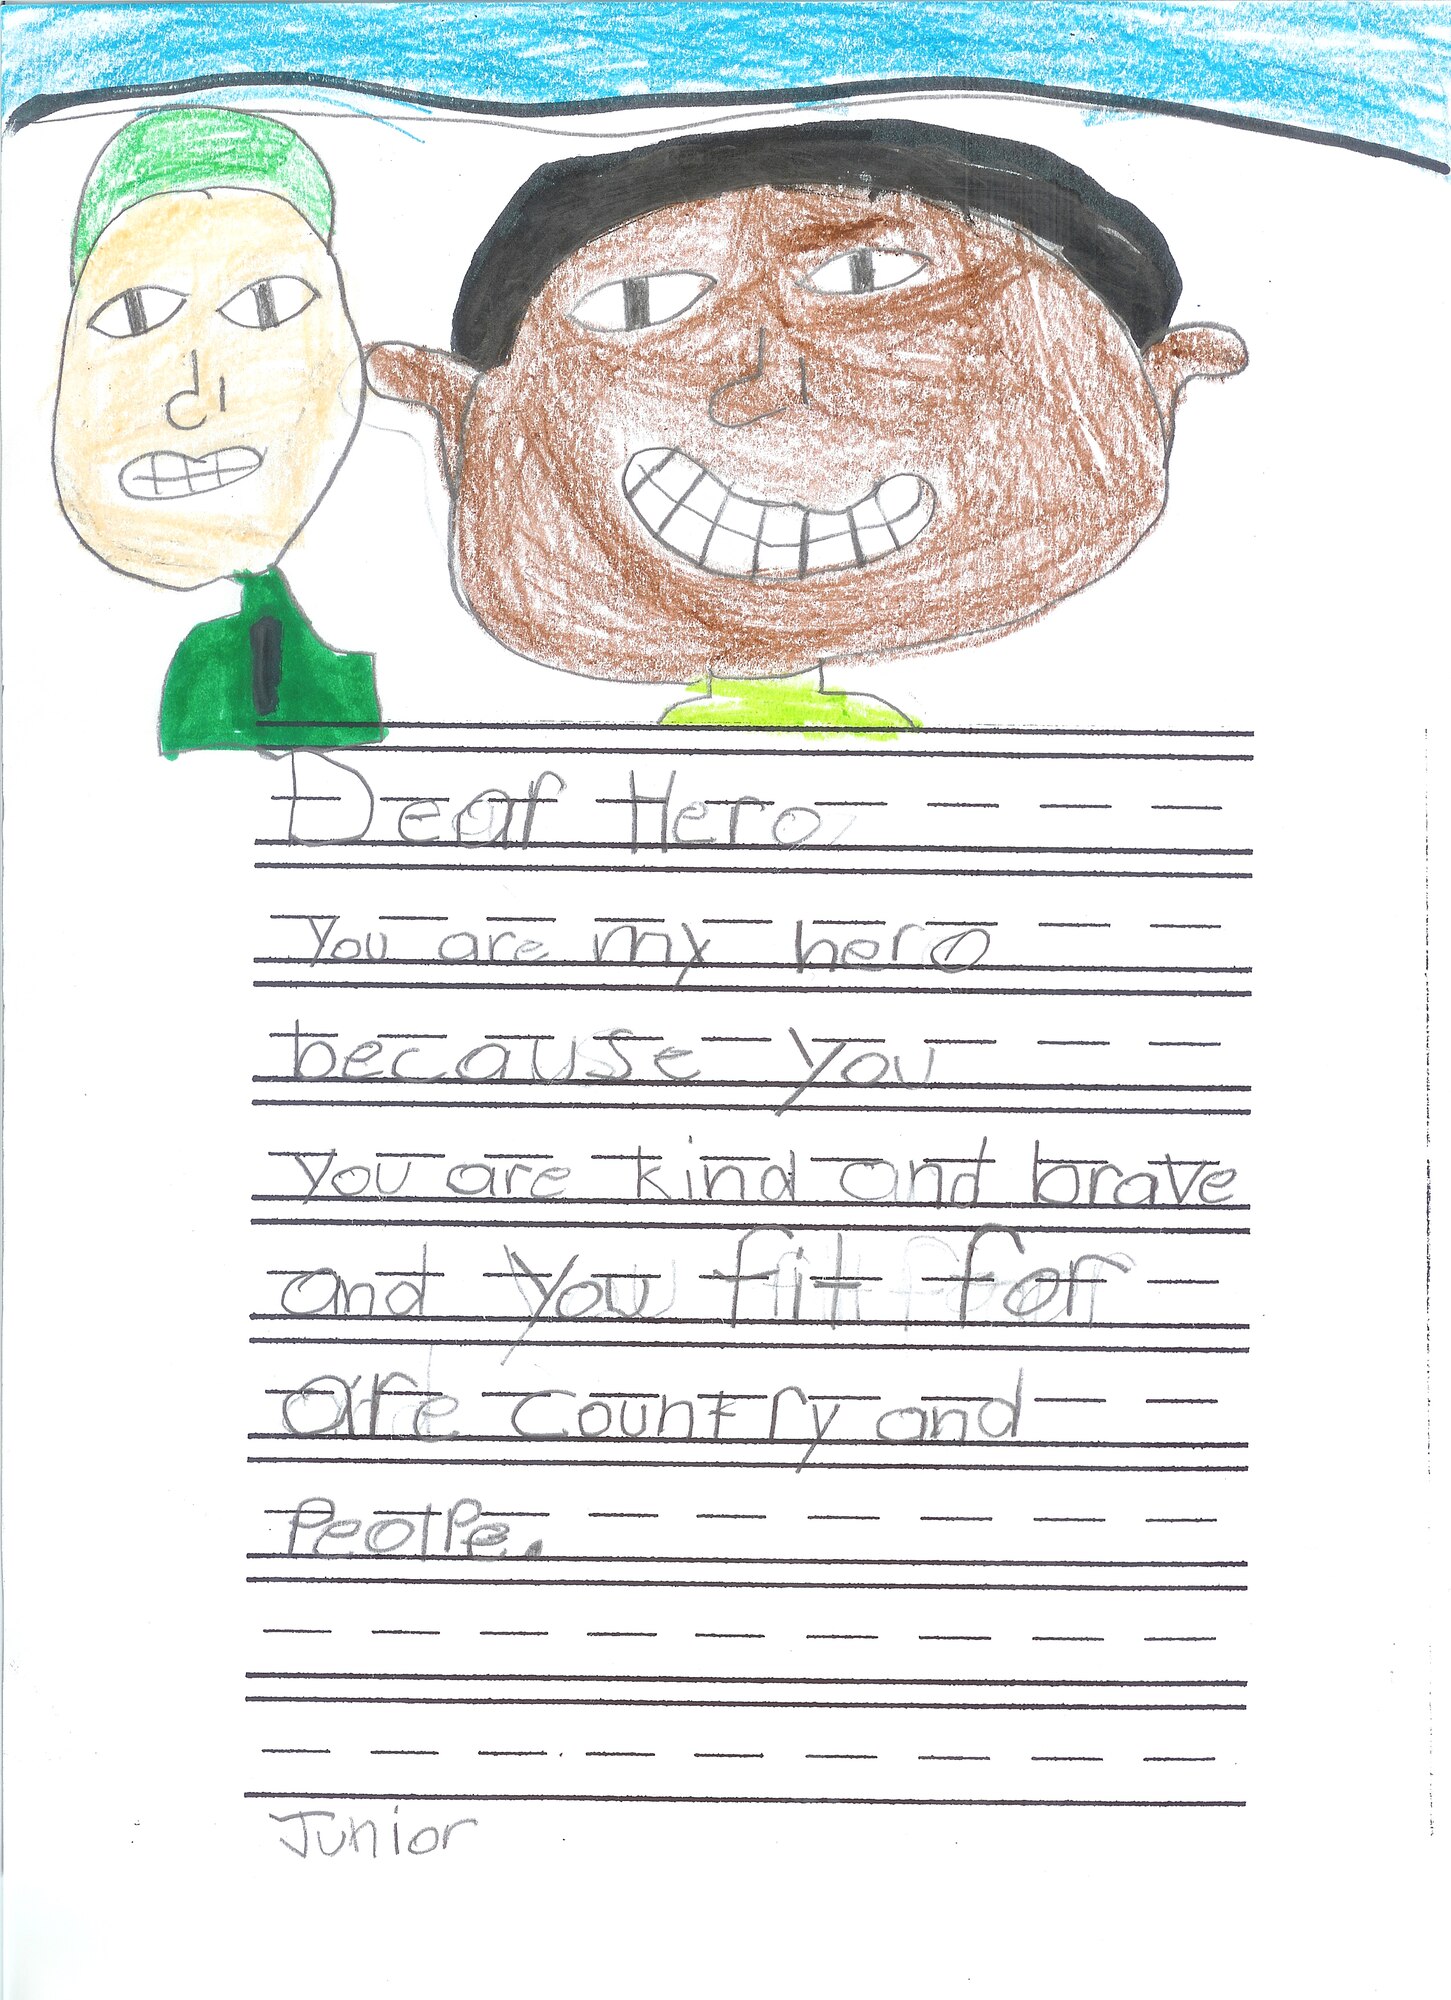 Dear Hero,
you are my hero
because you
you are kind and brave
and you fit for
are country and
PeolPe.
Junior